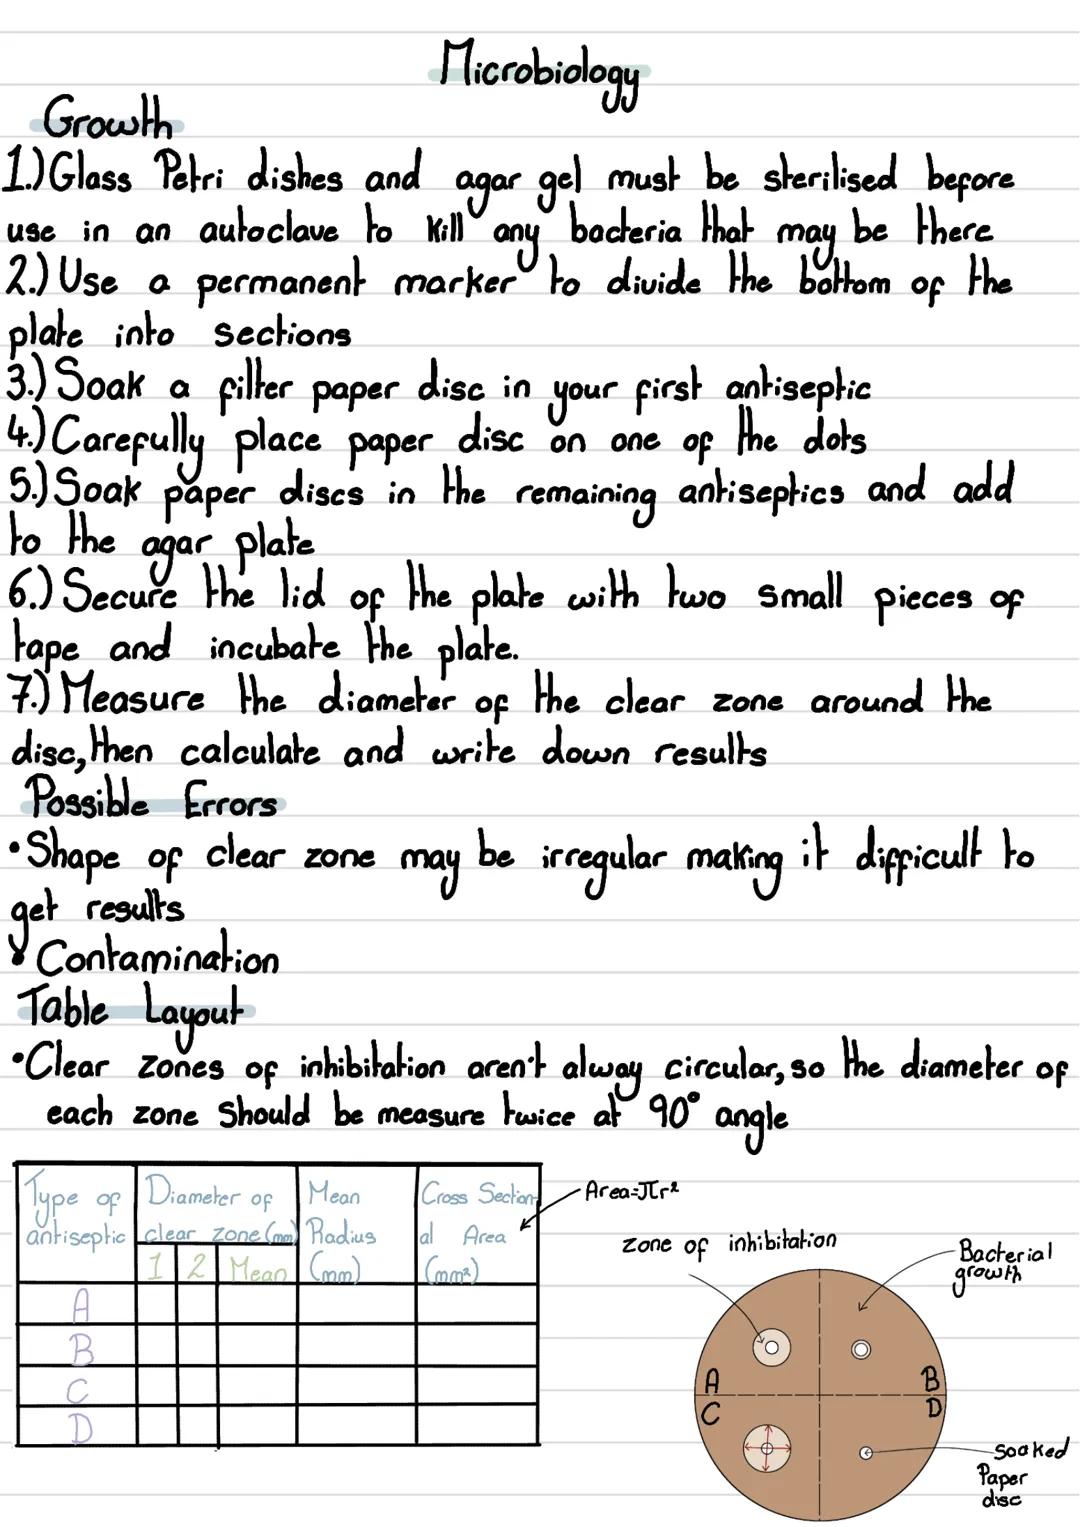 Microbiology
Growth
1.) Glass Petri dishes and agar gel must be sterilised before
use in an autoclave to kill any bacteria that may be there
2.) Use a permanent marker to divide the bottom of the
plate into sections
3.) Soak a filter paper disc in your first antiseptic
4.) Carefully place paper disc on one of the dots
5.) Soak paper discs in the remaining antiseptics and add
to the agar plate
6.) Secure the lid of the plate with two small pieces of
tape and incubate the plate.
7.) Measure the diameter of the clear zone around the
disc, then calculate and write down results
Possible Errors
•Shape of clear zone may be irregular making it difficult to
get results
• Contamination
Table Layout
•Clear zones of inhibitation aren't alway circular, so the diameter of
each zone should be measure twice at 90° angle
Type of
antiseptic
Diameter of
clear zone (mm)
1 2 Mean
Mean
Radius
(mm)
Cross Section-
al Area
(mm²)
Area=πr²
A
B
C
D
zone of inhibitation
Bacterial
growth
A B
C D
Soaked
Paper
disc